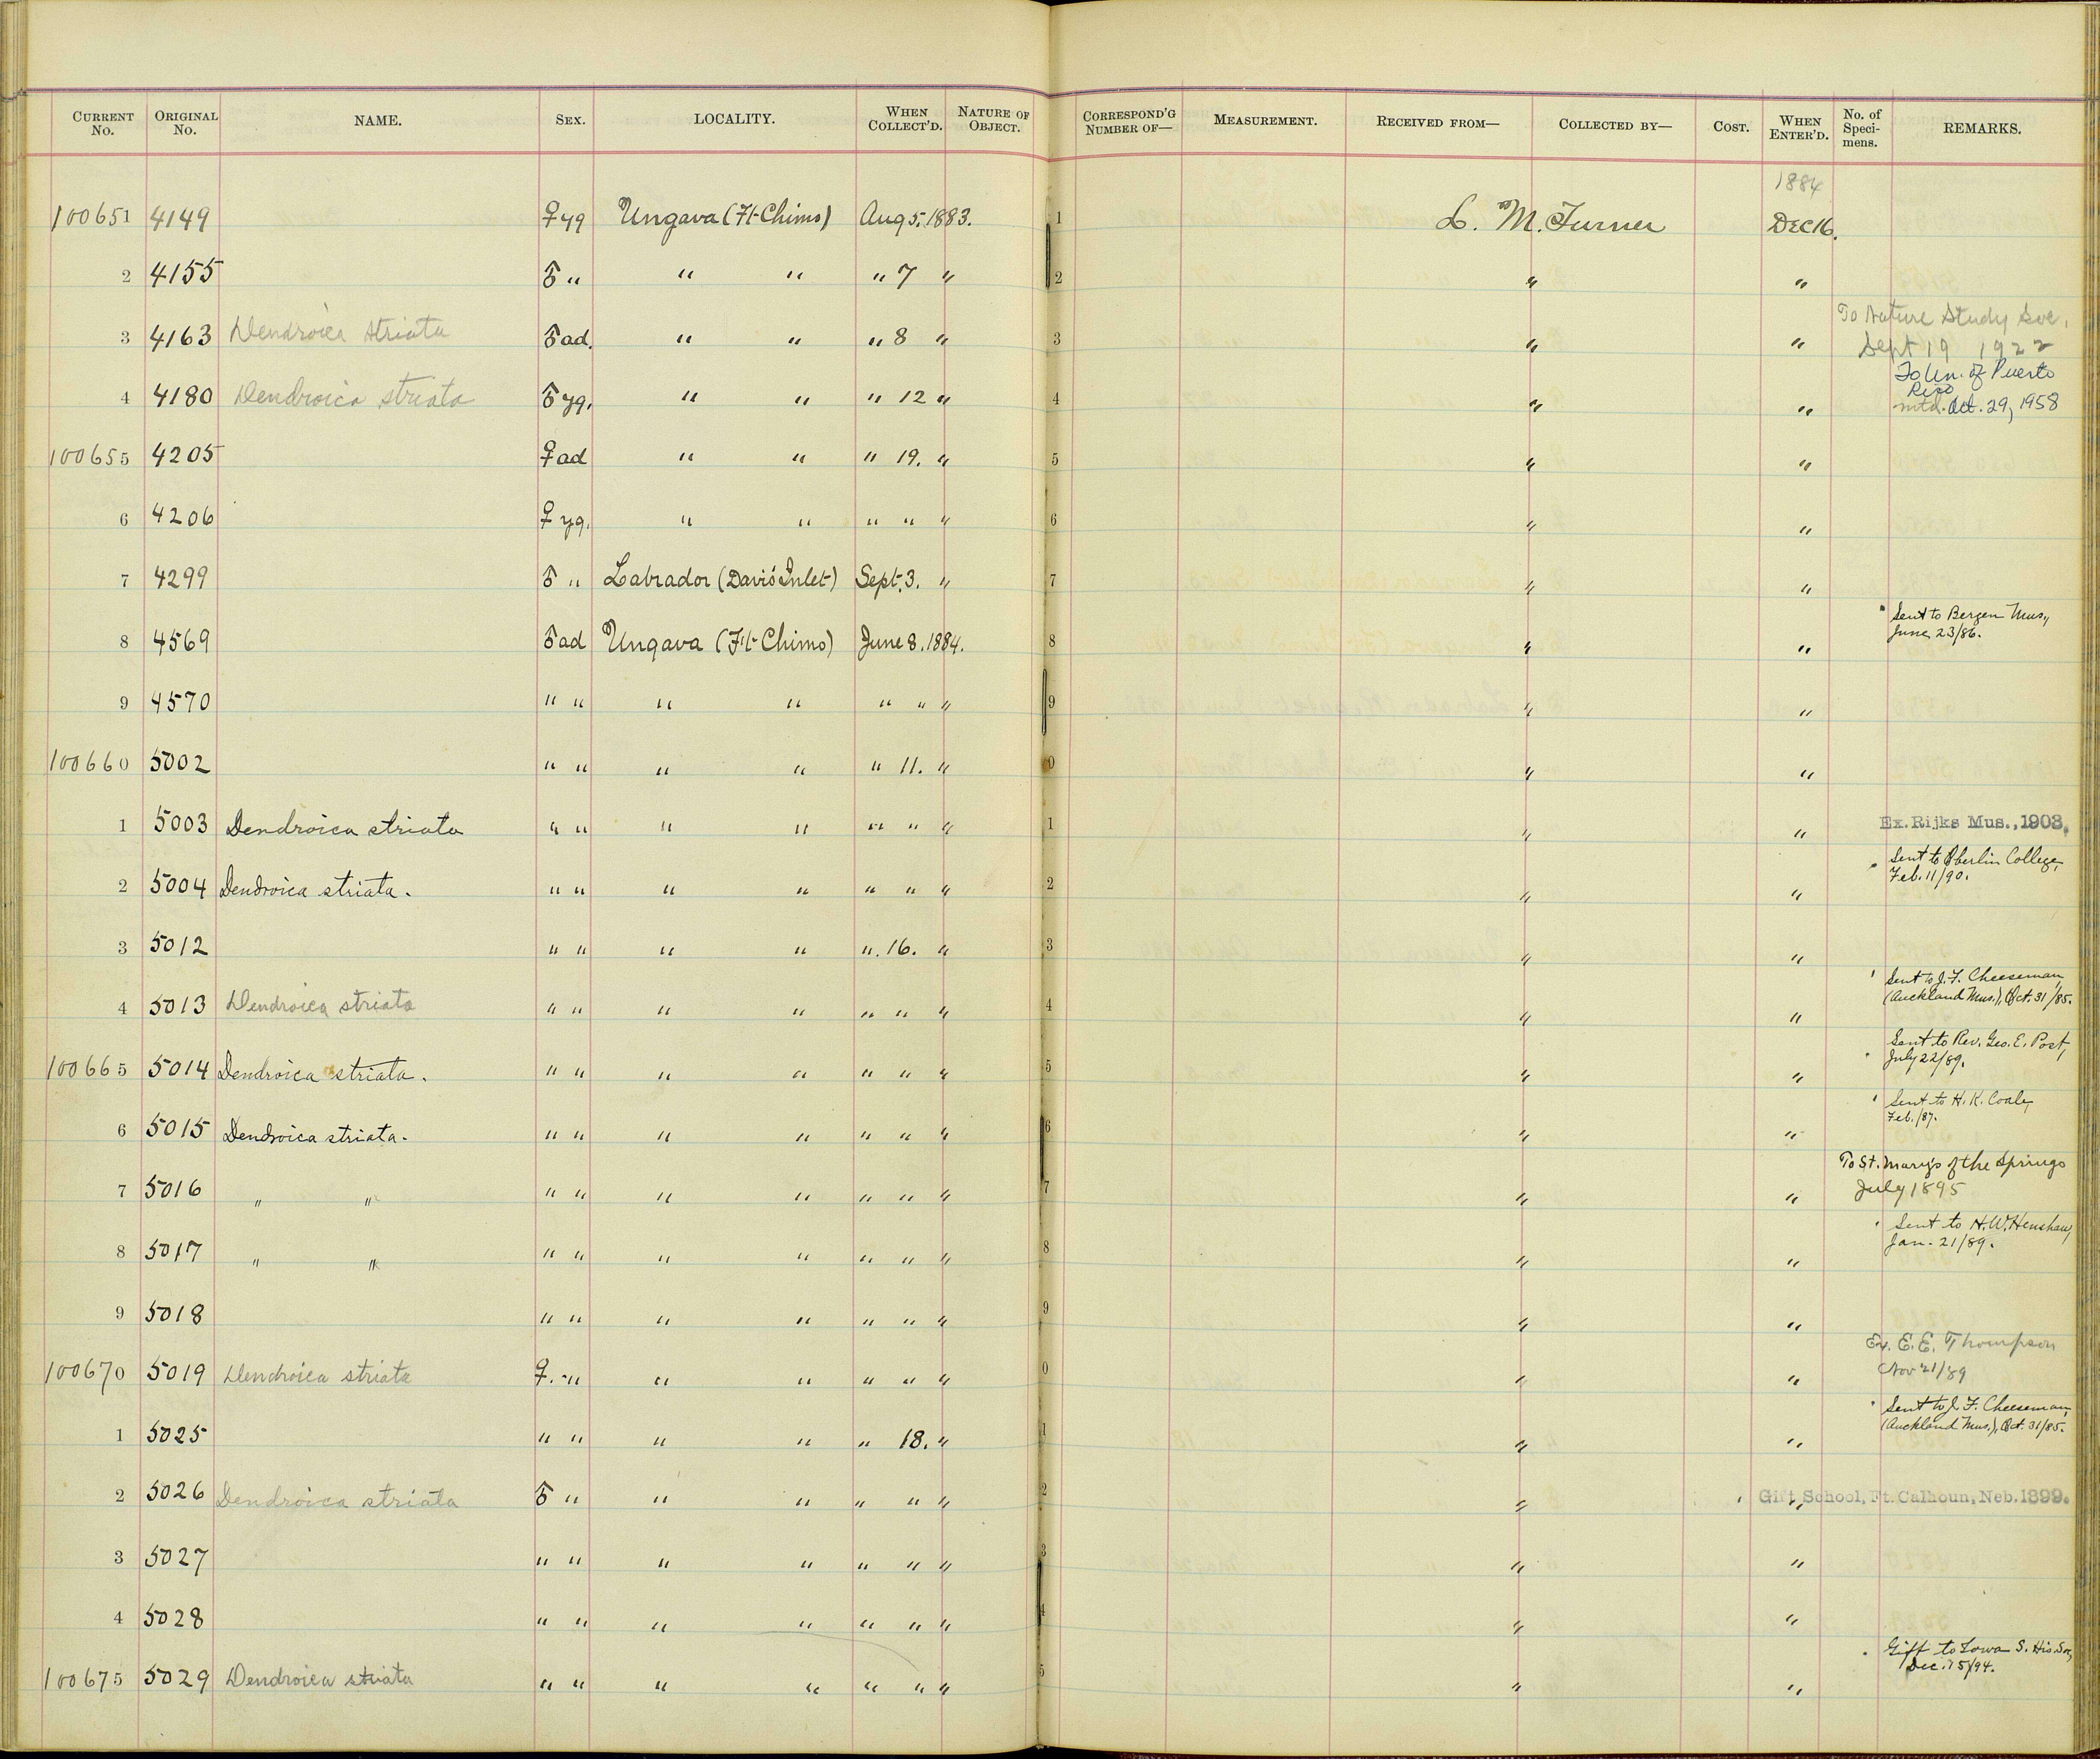 CURRENT No. ORIGINAL No. NAME. SEX. LOCALITY. WHEN COLLECT'D. NATURE OF OBJECT. CORRESPOND'G NUMBER OF— MEASUREMENT. RECEIVED FROM— COLLECTED BY— COST. WHEN ENTER'D. No. of Speci-mens. REMARKS.
1884
100651 4149 ♀ yg Ungava (Ft Chimo) Aug 5. 1883. 1 L. M. Turner DEC 16.
2 4155 ♂ " " " " 7 " 2 " "
3 4163 Dendroica striata ♂ ad. " " " 8 " 3 " " To Nature Study Soc. Sept 19 1922
4 4180 Dendroica striata ♂ yg. " " " 12 " 4 " " To Un. of Puerto Rico mtd. Oct. 29, 1958
100655 4205 ♀ ad " " " 19. " 5 " "
6 4206 ♀ yg. " " " " " 6 " "
7 4299 ♂ " Labrador (Davis Inlet) Sept. 3. " 7 " "
8 4569 ♂ ad Ungava (Ft Chimo) June 8. 1884. 8 " " Sent to Bergen Mus., June 23/86.
9 4570 " " " " " " " 9 " "
100660 5002 " " " " " 11. " 0 " "
1 5003 Dendroica striata " " " " " " " 1 " " Ex. Rijks Mus., 1903.
2 5004 Dendroica striata. " " " " " " " 2 " " Sent to Oberlin College, Feb. 11/90.
3 5012 " " " " " . 16. " 3 " "
4 5013 Dendroica striata " " " " " " " 4 " " Sent to J. F. Cheeseman, (Auckland Mus.), Oct. 31/85.
100665 5014 Dendroica striata. " " " " " " " 5 " " Sent to Rev. Geo. E. Post, July 22/89.
6 5015 Dendroica striata. " " " " " " " 6 " " Sent to H. K. Coale, Feb./87.
7 5016 " " " " " " " " " 7 " " To St. Mary's of the Springs July 1895
8 5017 " " " " " " " " " 8 " " Sent to H. W. Henshaw, Jan. 21/89.
9 5018 " " " " " " " 9 " "
100670 5019 Dendroica striata ♀. " " " " " " 0 " " Ex. E. E. Thompson Nov 21/89
1 5025 " " " " " 18. " 1 " " Sent to J. F. Cheeseman, (Auckland Mus.), Oct. 31/85.
2 5026 Dendroica striata ♂ " " " " " " 2 " " Gift School, Ft. Calhoun, Neb. 1899.
3 5027 " " " " " " " 3 " "
4 5028 " " " " " " " 4 " "
100675 5029 Dendroica striata " " " " " " " 5 " " Gift to Iowa S. His. Soc, Dec. 15/94.